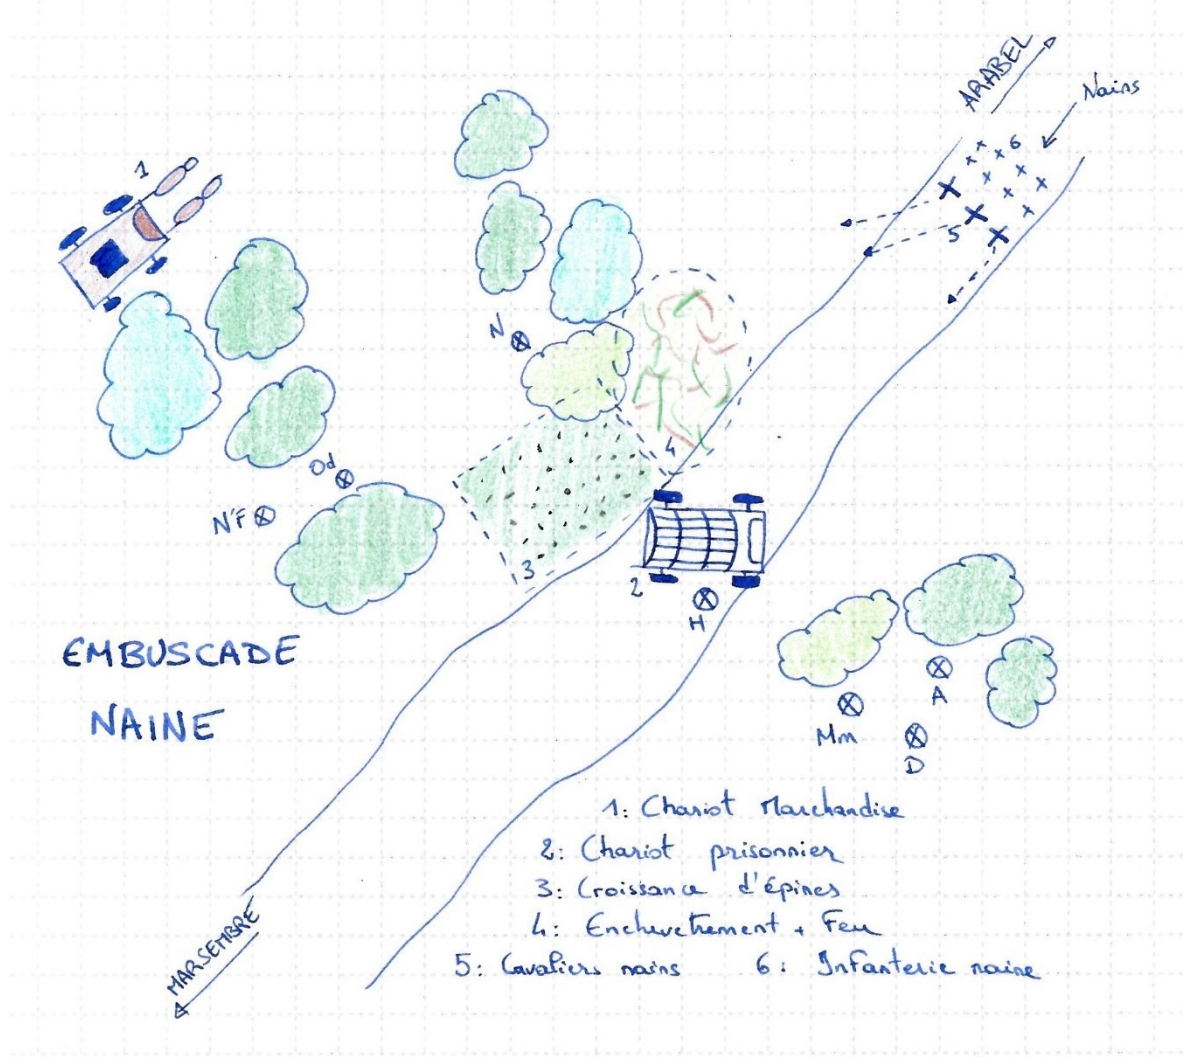 ARABEL
Nains
6
1
5
N
4
Od
N'F
3
2
H
EMBUSCADE
NAINE
A
Mm
D
1: Chariot Marchandise
2: Chariot prisonnier
3: Croissance d'épines
4: Enchevetrement + Feu
5: Cavaliers nains 6: Infanterie naine
MARSEMBRE